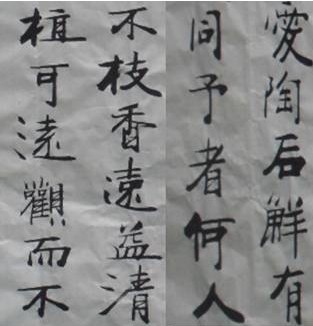 愛陶后鮮有
同予者何人
不枝香遠益清
植可遠觀而不